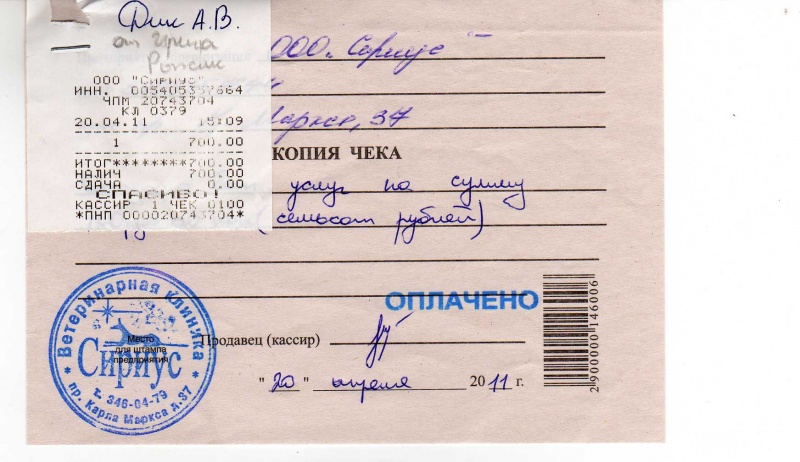 Дик А.В.
от гриппа
Рыжик
ООО "СИРИУС"
ИНН. 005405357664
ЧПМ 20743704
КЛ 0379
20.04.11 15:09
1 700.00
ИТОГ********700.00
НАЛИЧ 700.00
СДАЧА 0.00
СПАСИБО!
КАССИР 1 ЧЕК 0100
*ПНП 000020743704*
ООО "Сириус"
Маркса, 37
КОПИЯ ЧЕКА
услуг на сумму
(семьсот рублей)
ОПЛАЧЕНО
Продавец (кассир)
"20" апреля 2011 г.
2 900000 146006
* Ветеринарная клиника *
Место
для штампа
предприятия
Сириус
т. 346-04-79
пр. Карла Маркса д.37